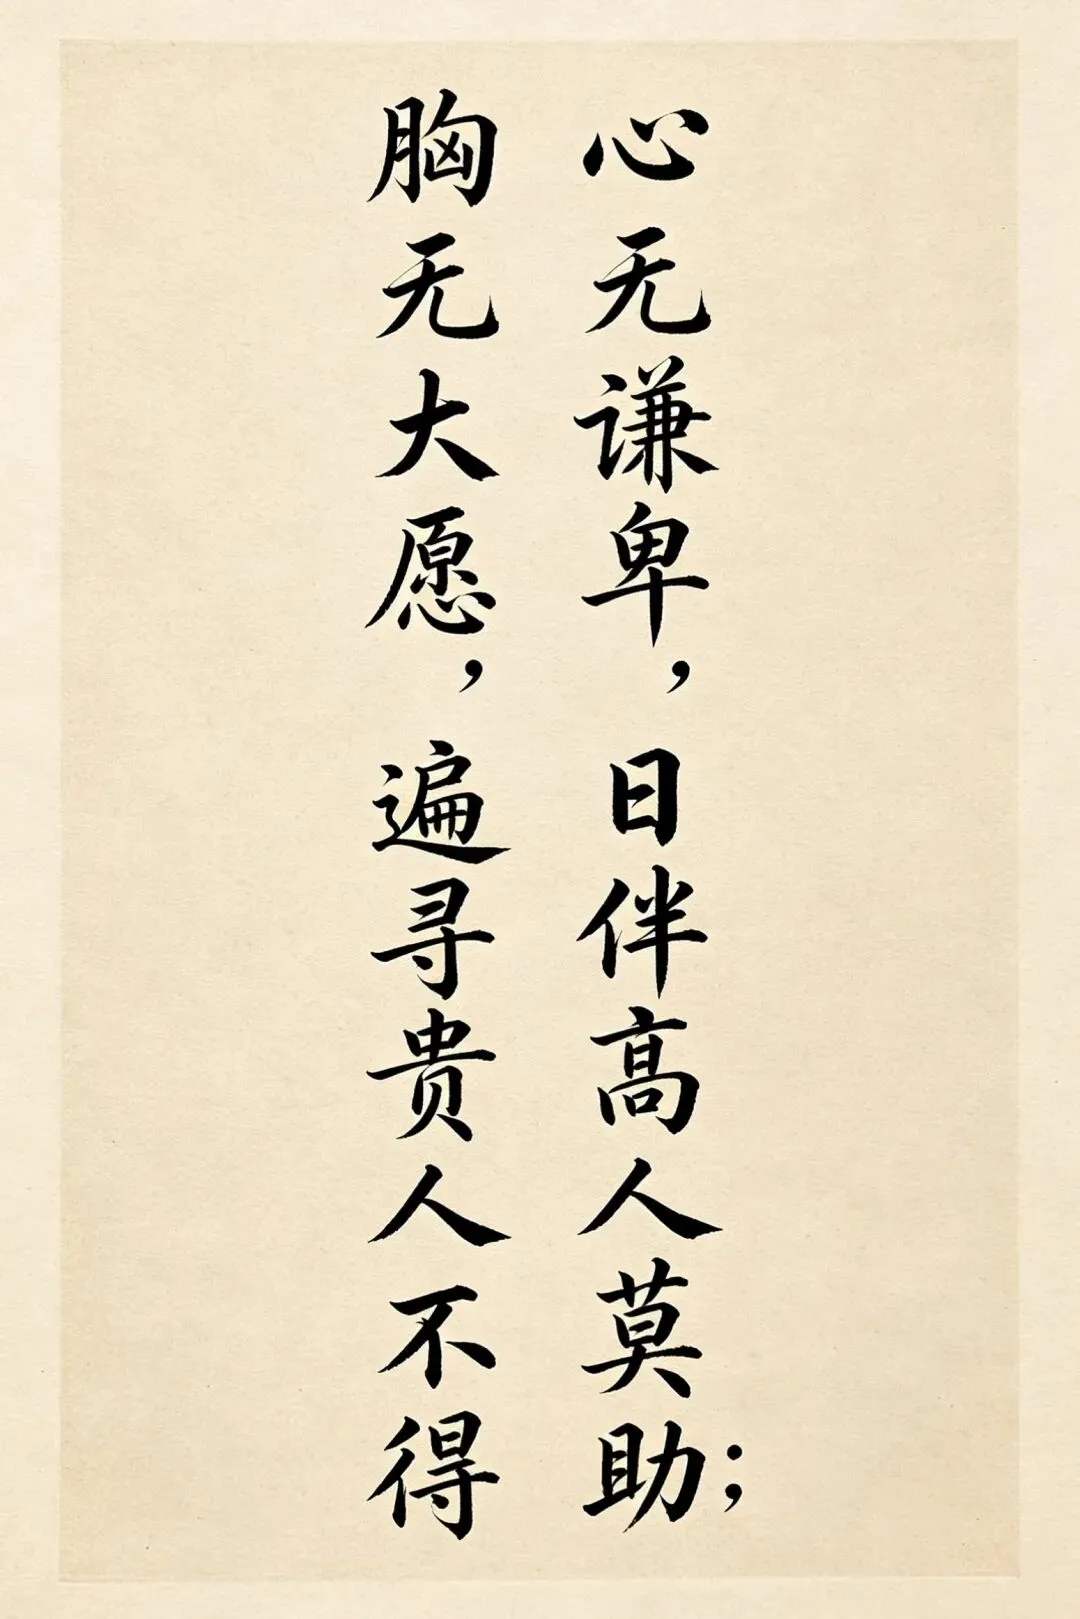 心无谦卑，日伴高人莫助；
胸无大愿，遍寻贵人不得